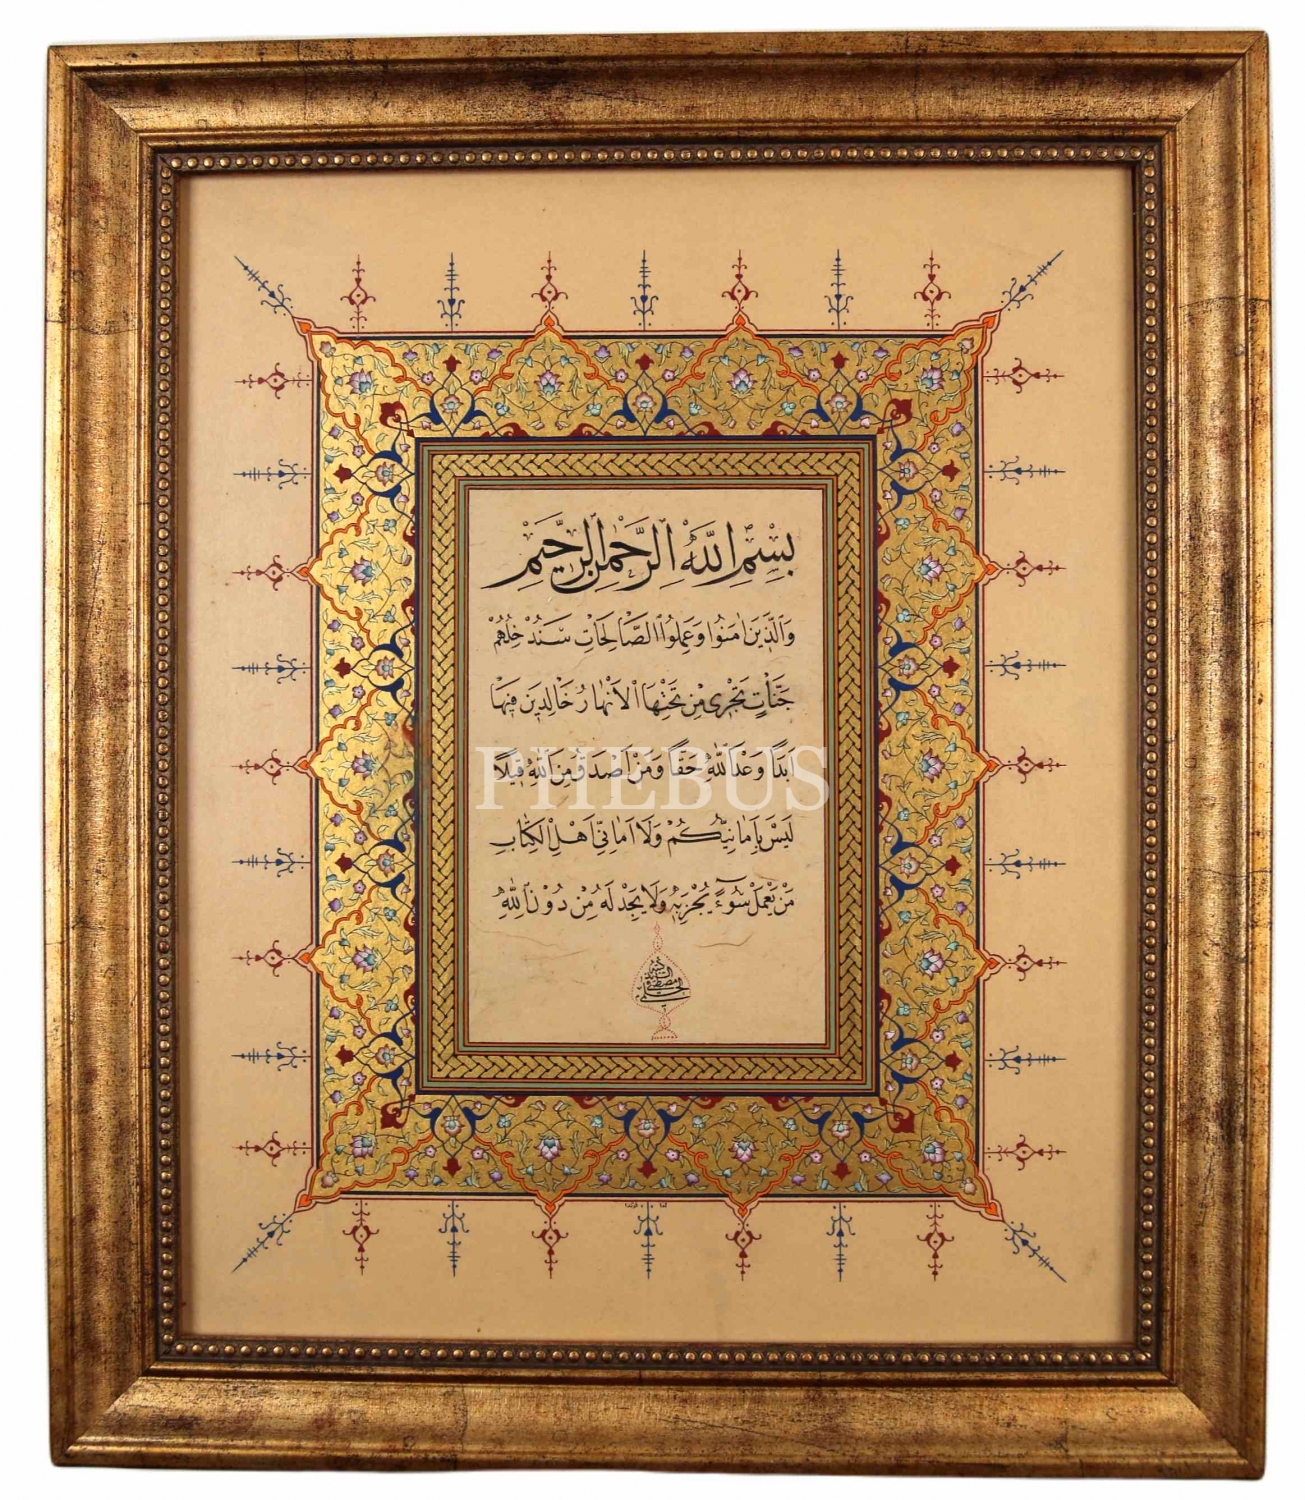 بِسْمِ اللّٰهِ الرَّحْمٰنِ الرَّحِيْمِ
وَالَّذِينَ اٰمَنُوا وَعَمِلُوا الصَّالِحَاتِ سَنُدْخِلُهُمْ
جَنَّاتٍ تَجْرِي مِنْ تَحْتِهَا الْاَنْهَارُ خَالِدِينَ فِيهَا
اَبَدًا وَعْدَ اللّٰهِ حَقًّا وَمَنْ اَصْدَقُ مِنَ اللّٰهِ قِيلًا
PHEBUS
لَيْسَ بِاَمَانِيِّكُمْ وَلَا اَمَانِيِّ اَهْلِ الْكِتَابِ
مَنْ يَعْمَلْ سُوٓءً يُجْزَ بِهِ وَلَا يَجِدْ لَهُ مِنْ دُوْنِ اللّٰهِ